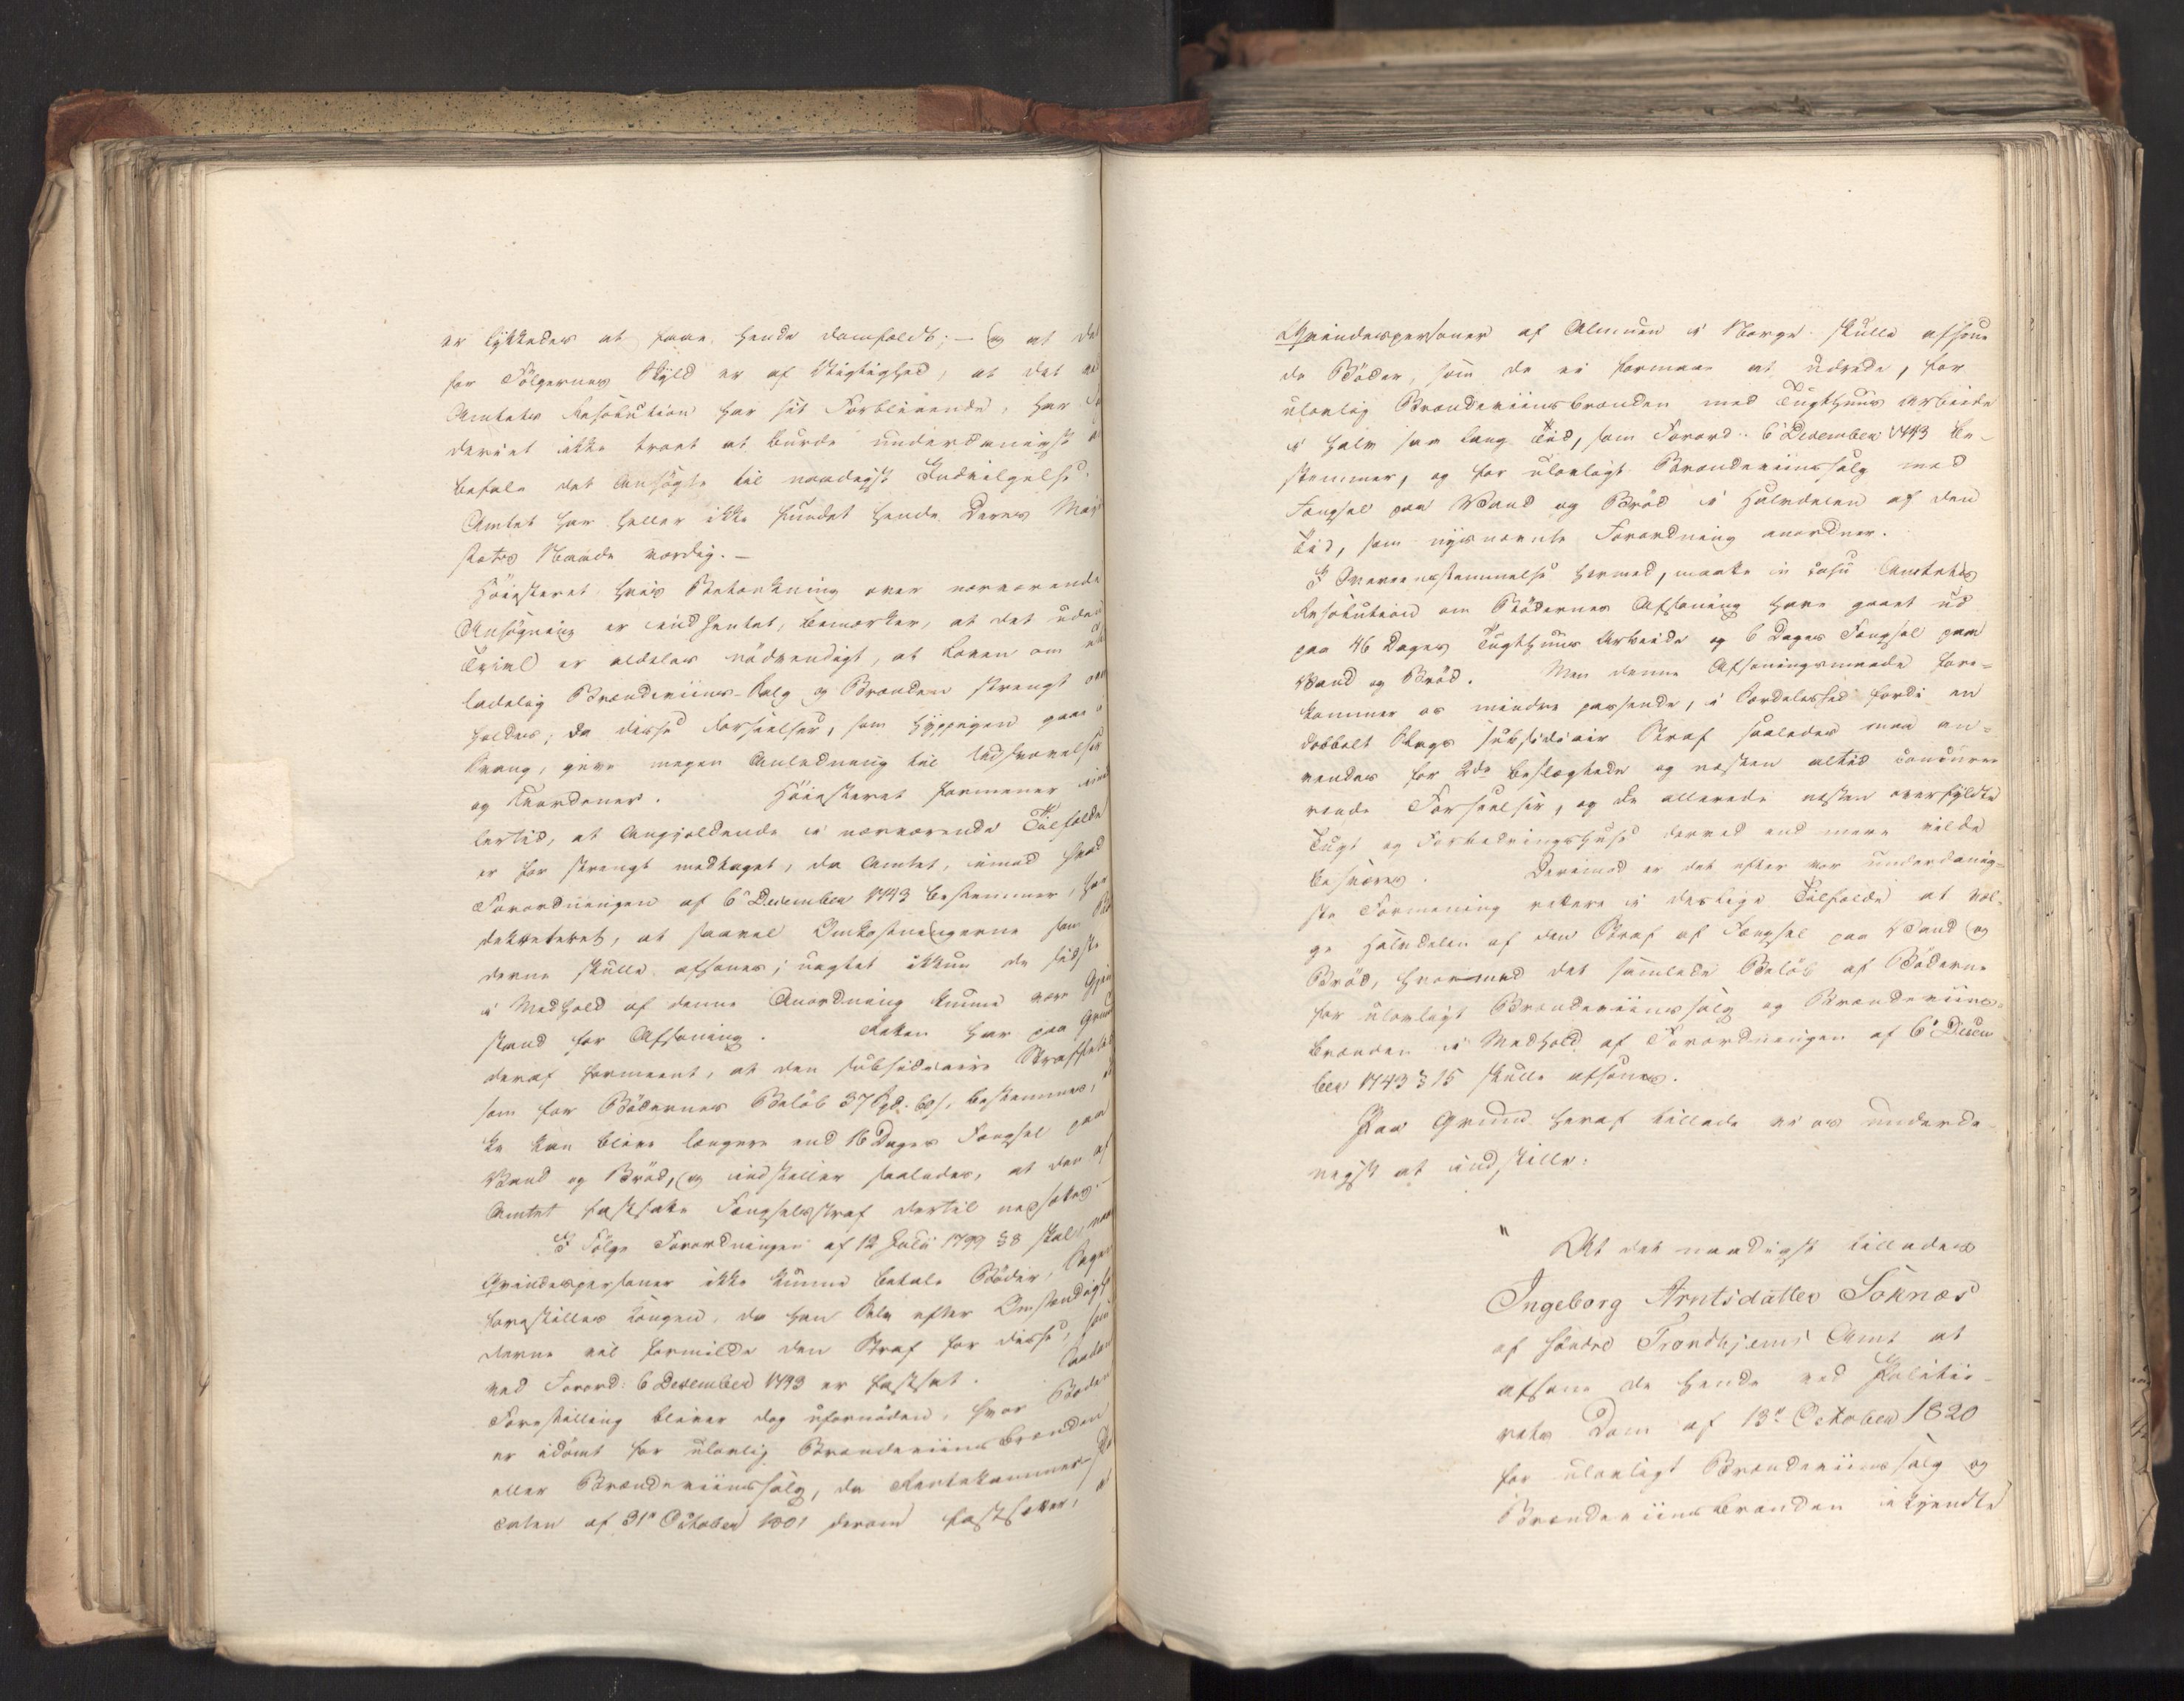 er lykkedes at faae hende domfældt; – og at det
for Følgernes Skyld er af Vigtighed, at det ved
Amtets Resolution har sit Forblivende, har
deriet ikke troet at burde underdanigst
befale det Ansøgte til naadigst Indvilgelse.
Amtet har heller ikke fundet hende Deres Maje
stæts Naade værdig. –
Høiesteret hvis Betænkning over nærværende
Ansøgning er indhentet, bemærker, at det uden
Tvivl er aldeles nødvendigt, at Loven om
ladelig Brændeviins-Salg og Brænden strengt over
holdes; da disse Forseelser, som hyppigen gaae i
Svang, give megen Anledning til Udsvævelser
og Uordener. Høiesteret formener imid
lertid, at Angjeldende i nærværende Tilfælde
er for strengt medtaget, da Amtet, imod hvad
Forordningen af 6te December 1743 bestemmer, har
decreteret, at saavel Omkostningerne som Bø
derne skulle afsones; uagtet ikkun de sidste
i Medhold af denne Anordning kunne være Gjen
stand for Afsoning. Retten har paa Grund
deraf formeent, at den subsidiaire Straffetid
som for Bødernes Beløb 37 Spd. 60 s. bestemmes,
ke kan blive længere end 16 Dages Fængsel paa
Vand og Brød, og indstiller saaledes, at den af
Amtet fastsatte Fængselsstraf dertil nedsættes. –
I Følge Forordningen af 12 Julii 1799 § 8 skal, naar
Qvindespersoner ikke kunne betale Bøder, Sagen
forestilles Kongen, da han selv efter Omstændighe
derne vil formilde den Straf for disse, som
ved Forord: 6 December 1743 er fastsat. Saadan
Forestilling bliver dog ufornøden, hvor Bøder
er idømt for ulovlig Brændeviinsbrænden
eller Brændeviinssalg, da Rentekammer-
culen af 31te October 1801 derom fastsætter, at
Qvindespersoner af Almuen i Norge skulle afsone
de Bøder, som de ei formaae at udrede, for
ulovlig Brændeviinsbrænden med Tugthuus Arbeide
i halv saa lang Tid, som Forord: 6te December 1743 be-
stemmer, og for ulovligt Brændeviinssalg med
Fængsel paa Vand og Brød i Halvdelen af den
Tid, som nysnævnte Forordning anordner.
I Overeensstemmelse hermed, maatte in casu Amtets
Resolution om Bødernes Afsoning have gaaet ud
paa 46 Dages Tugthuus Arbeide og 6 Dages Fængsel paa
Vand og Brød. Men denne Afsoningsmaade fore=
kommer os mindre passende, i Særdeleshed fordi en
dobbelt Slags subsidiair Straf saaledes maa an=
vendes for 2de beslægtede og næsten altid concurre
rende Forseelser, og de allerede næsten overfyldte
Tugt og Forbedringshuse derved end mere vilde
besværes. Derimod er det efter vor underdanig=
ste Formening rettere i deslige Tilfælde at væl-
ge Halvdelen af den Straf af Fængsel paa Vand og
Brød, hvormed det samlede Beløb af Bøderne
for ulovligt Brændeviinssalg og Brændeviins=
brænden i Medhold af Forordningen af 6te Decem
ber 1743 § 15 skulle afsones.
Paa Grund heraf tillade vi os underda-
nigst at indstille:
" At det naadigst tillades
Ingeborg Arntsdatter Soknæs
af søndre Trondhjems Amt at
afsone de hende ved Politie-
rets Dom af 13de October 1820
for ulovligt Brændeviinssalg og
Brændeviinsbrænden ikjendte